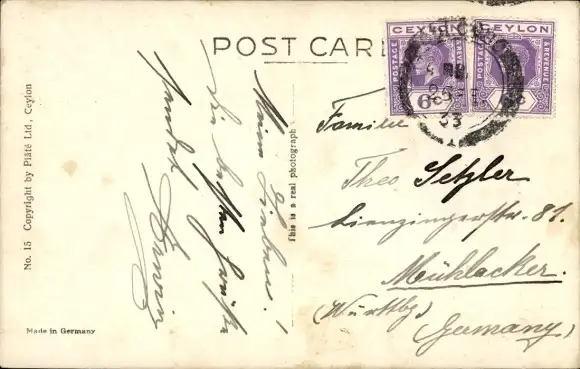 POST CARD
CEYLON
POSTAGE
& REVENUE
6c
CEYLON
POSTAGE
& REVENUE
33
Meine Lieben!
Die besten Grüße
sendet
Erwin
Familie
Theo Setzler
Lienzingerstr. 81.
Mühlacker.
(Württbg)
(Germany)
This is a real photograph
No. 15 Copyright by Plâté Ltd, Ceylon
Made in Germany